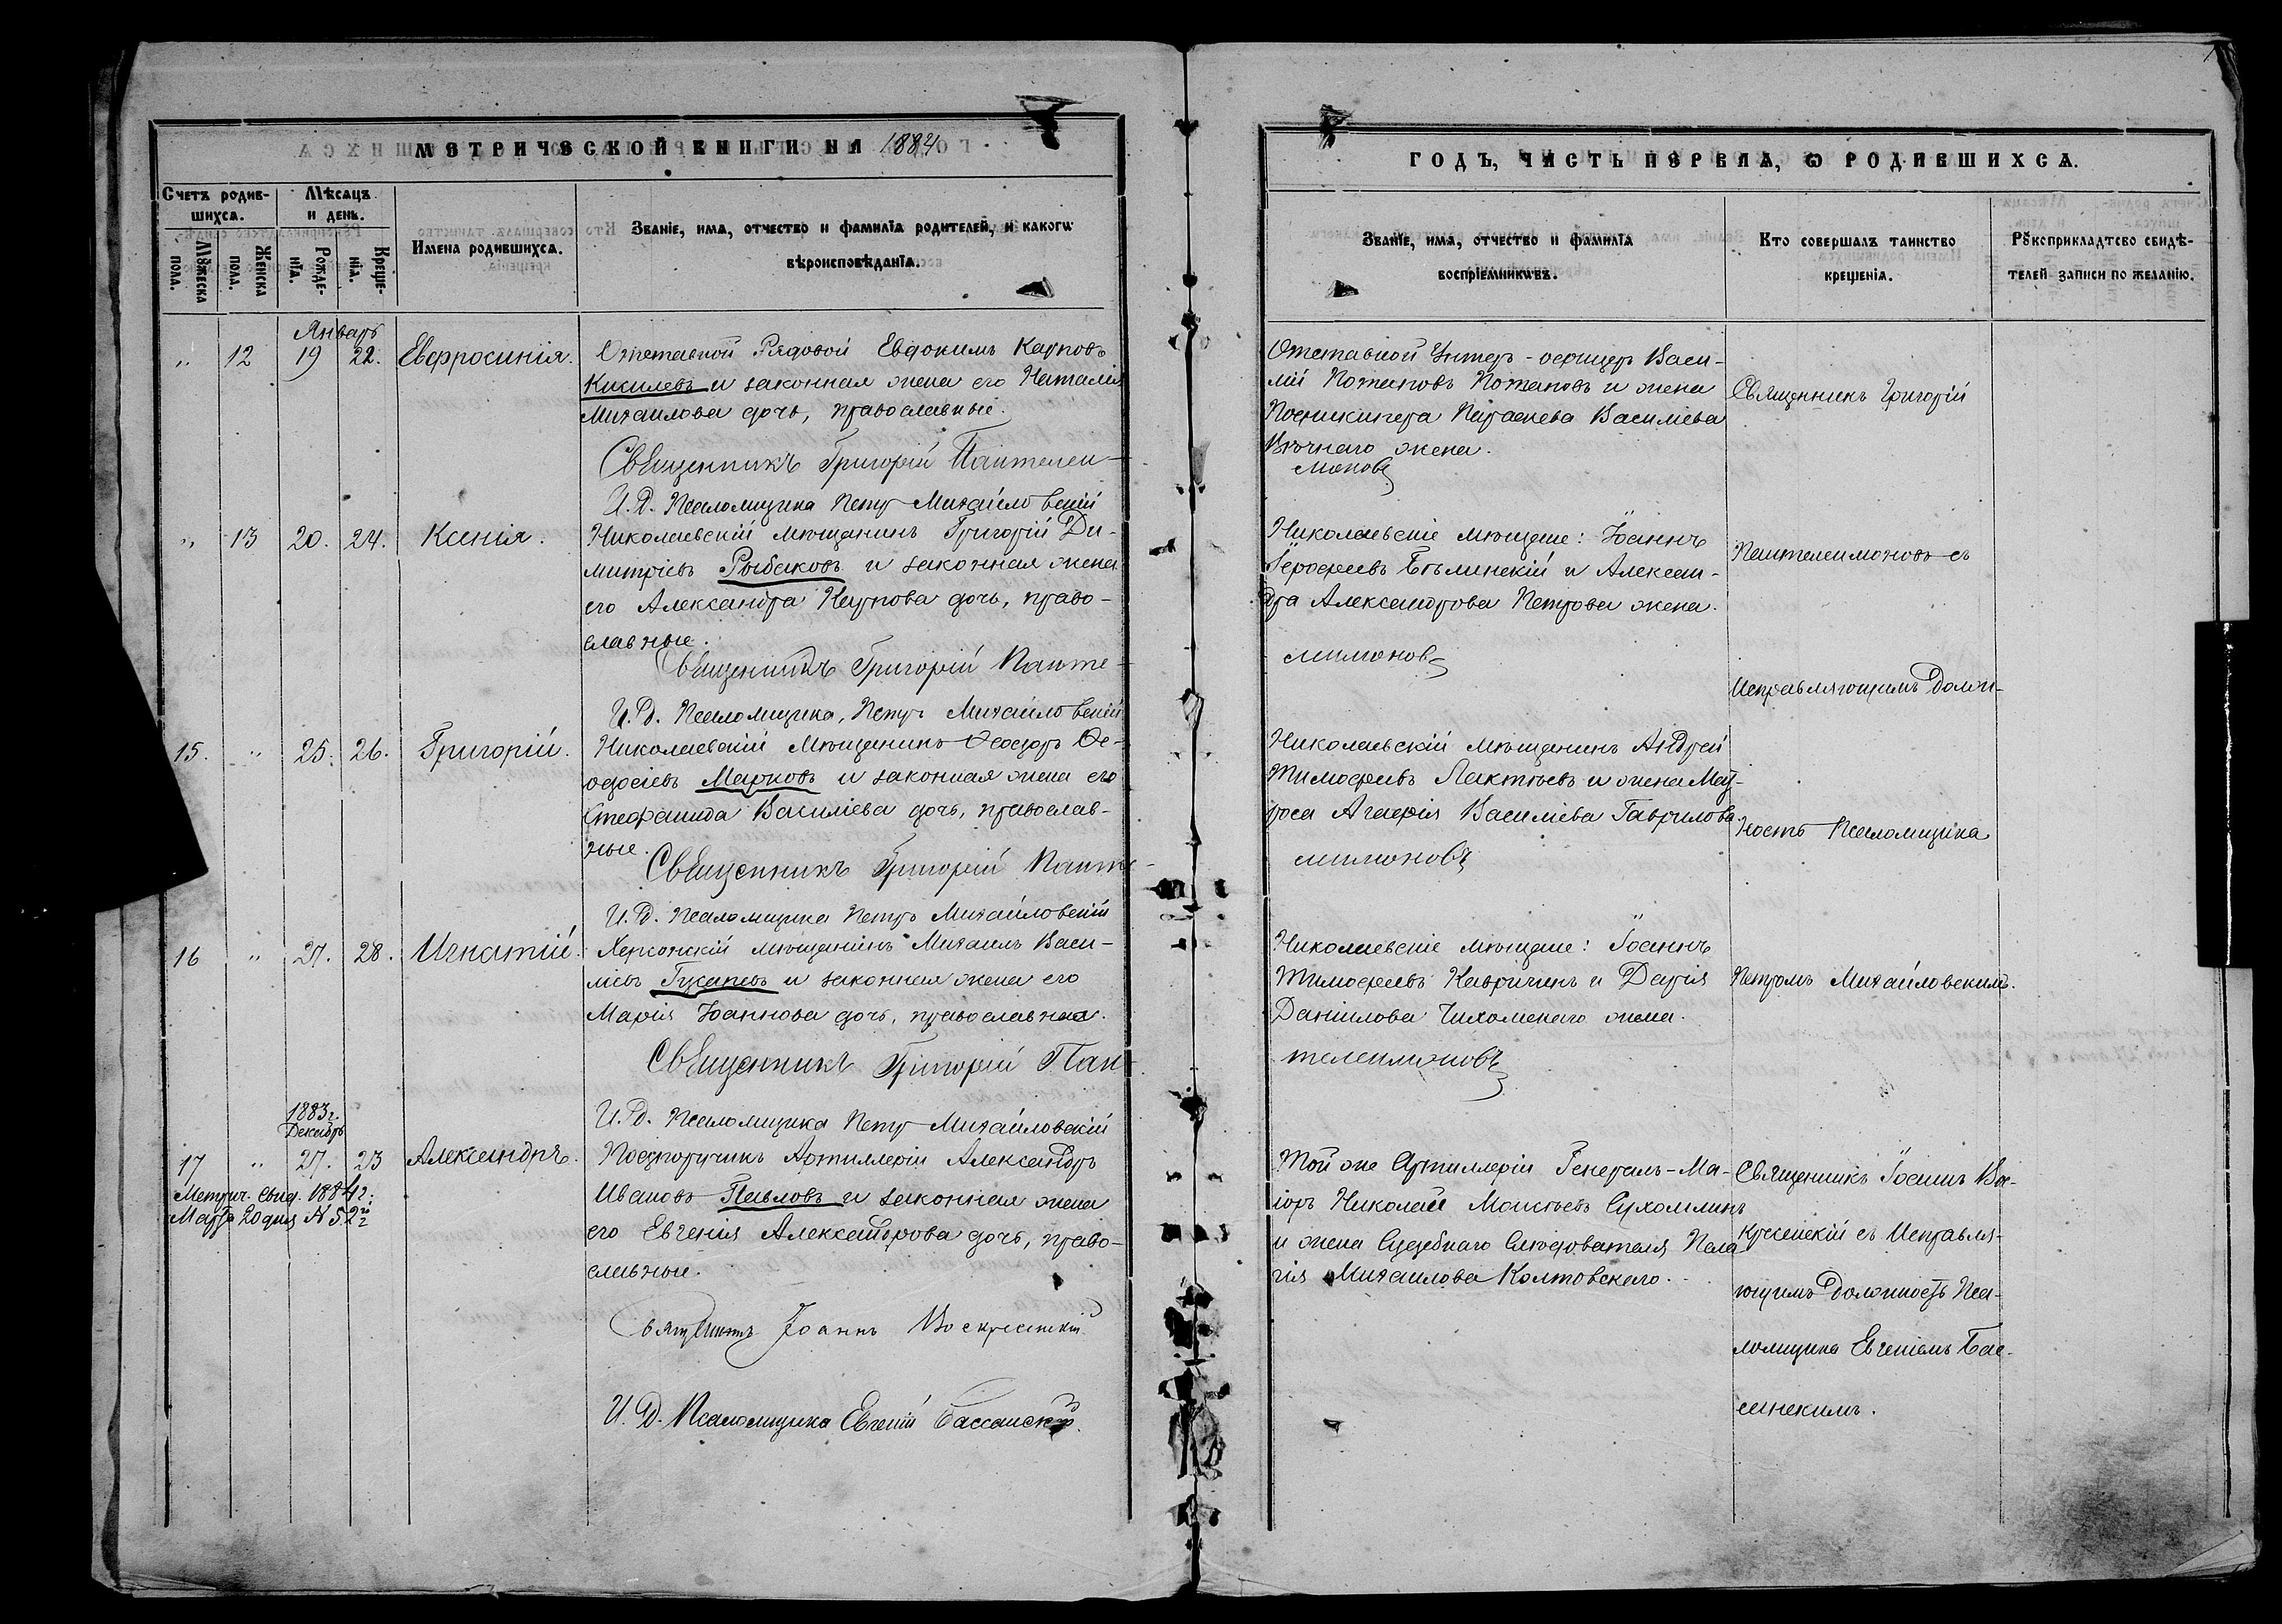 МЕТРИЧЕСКОЙ КНИГИ НА 1884
Счетъ родив-
шихся.
Мѣсяцъ
и день.
Мꙋжеска
пола.
Женска
пола.
Рожде-
нїя.
Креще-
нїя.
Имена родившихся.
Званіе, имя, отчество и фамилїа родителей, и какогѡ
вѣроисповѣданїа.
Январь
„ 12 19 22. Евфросинія.
Отставной Рядовой Евдокимъ Карповъ
Кисилевъ и законная жена его Наталія
Михаилова дочь, православные.
Священникъ Григорій Пантелеи-
И. Д. Псаломщика Петръ Михайловскій
„ 13 20. 24. Ксенія.
Николаевскій мѣщанинъ Григорій Ди-
митріевъ Рыбаковъ и законная жена
его Александра Карпова дочь, право-
славные.
Священникъ Григорій Панте-
И. Д. Псаломщика, Петръ Михайловскій
15. „ 25. 26. Григорій.
Николаевскій Мѣщанинъ Ѳеодоръ Ѳе-
одосіевъ Марковъ и законная жена его
Стефанида Василіева дочь, православ-
ные.
Священникъ Григорій Панте-
И. Д. Псаломщика Петръ Михайловскій
16 „ 27. 28. Игнатій.
Херсонскій мѣщанинъ Михаилъ Васи-
ліевъ и законная жена его
Марія Іоаннова дочь, православная.
Священникъ Григорій Пан-
И. Д. Псаломщика Петръ Михайловскій
1883 г.
Декабрь
17 „ 27. 23 Александръ.
Метрич. свид. 1884 г.
Марта 20 дня N 52
Подпоручикъ Артиллеріи Александръ
Ивановъ Павловъ и законная жена
его Евгенія Александрова дочь, право-
славные.
Священникъ Іоаннъ Воскресенскій
И. Д. Псаломщика Евгеній Бассанскій.
ГОДЪ, ЧАСТЬ ПЕРВАЯ, Ѡ РОДИВШИХСЯ.
Званіе, имя, отчество и фамилїа
воспрїемникѡвъ.
Кто совершалъ таинство
крещенїя.
Рꙋкоприкладтсво свидѣ-
телей записи по желанїю.
Отставной Унтеръ-офицеръ Васи-
лій Потаповъ Потаповъ и жена
Параскева Василіева
жена.
моновъ
Священникъ Григорій
Николаевскіе мѣщане: Іоаннъ
Іерофеевъ Бѣлинскій и Алексан-
дра Александрова Петрова жена.
лимоновъ
Пантелеимоновъ съ
Исправляющимъ долж-
Николаевскій мѣщанинъ Андрей
Тимофеевъ Лактѣевъ и жена Мат-
роса Агафія Василіева Гаврилова.
лимоновъ
ность Псаломщика
Николаевскіе мѣщане: Іоаннъ
Тимофеевъ и Дарія
Даніилова жена.
телеимоновъ
Петромъ Михайловскимъ.
Той же Артиллеріи Генералъ-Ма-
іоръ Николай Моисѣевъ Сухомлинъ
и жена Судебнаго Слѣдователя Пела
гія Михаилова Колтовскаго.
Священникъ Іоаннъ Во-
скресенскій съ Исправля-
ющимъ должность Пса-
ломщика Евгеніемъ Бас-
санскимъ.